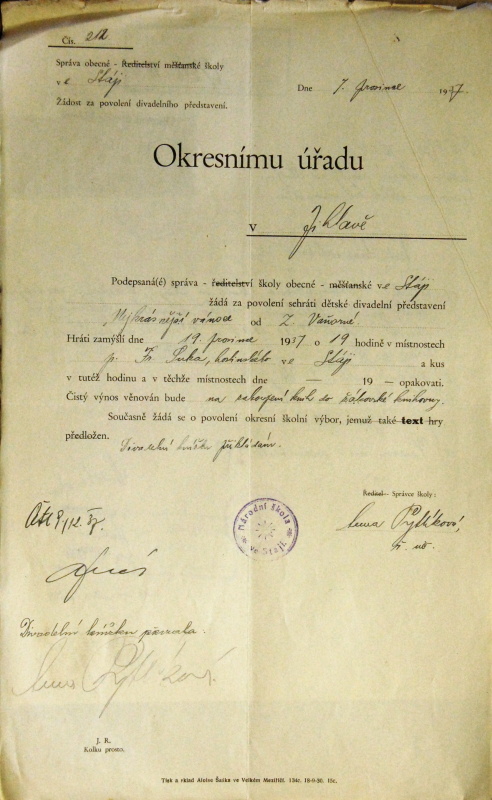 Čís. 212
Správa obecné - Ředitelství měšťanské školy
v e Stáji
Žádost za povolení divadelního představení.
Dne 7. prosince 1937.
Okresnímu úřadu
v Jihlavě
Podepsaná(é) správa - ředitelství školy obecné - měšťanské ve Stáji
žádá za povolení sehráti dětské divadelní představení
Nejkrásnější vánoce od Z. Vaňorné
Hráti zamýšlí dne 19. prosince 1937 o 19 hodině v místnostech
p. Fr. hostinského ve Stáji a kus
v tutéž hodinu a v těchže místnostech dne — 19 — opakovati.
Čistý výnos věnován bude na zakoupení knih do žákovské knihovny.
Současně žádá se o povolení okresní školní výbor, jemuž také text hry
předložen. Divadelní knížku přikládám.
Ředitel - Správce školy:
Anna Pytlíková,
Národní škola
ve Stáji
9./12. 37.
Divadelní převzala.
Anna Pytlíková.
J. R.
Kolku prosto.
Tisk a sklad Aloise Šaška ve Velkém Meziříčí. 134c. 18-9-36. 15c.